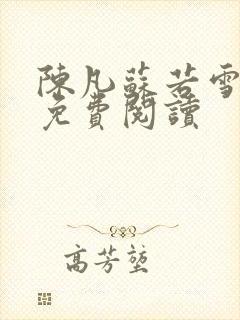 陳凡蘇若雪
免費閱讀
高芳堃